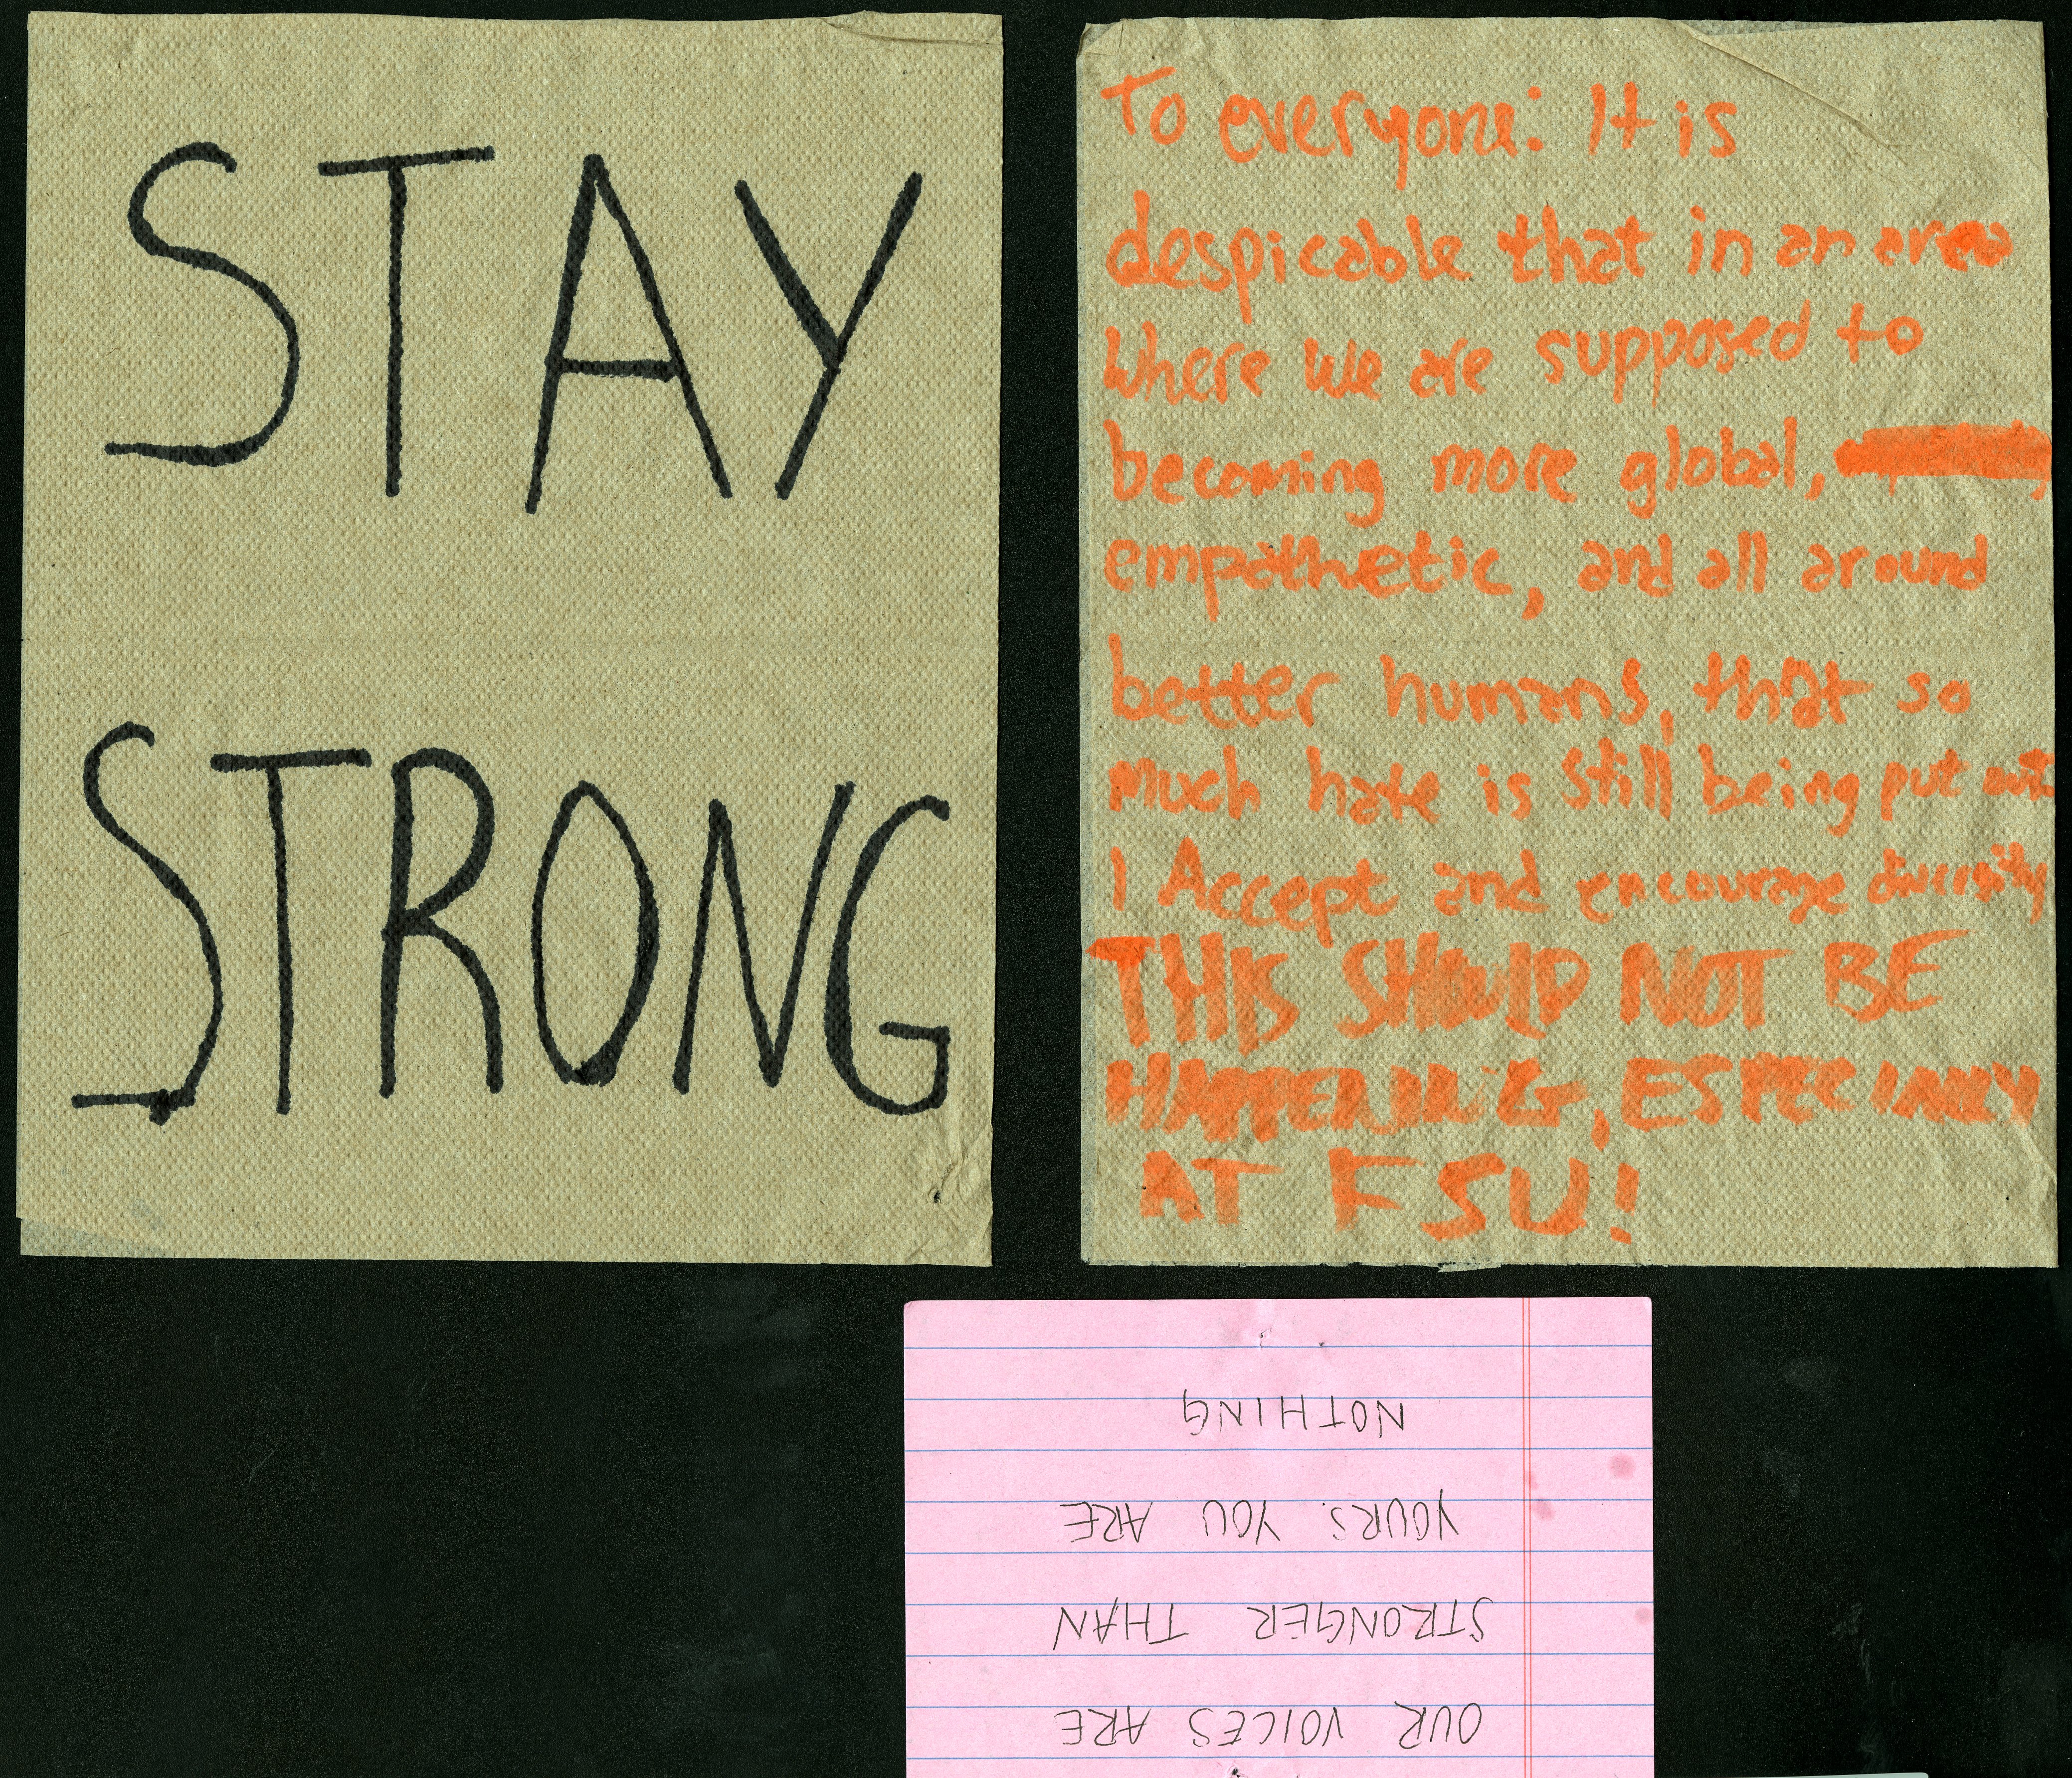 STAY
STRONG
To everyone: It is
despicable that in an area
where we are supposed to
becoming more global,
empathetic, and all around
better humans, that so
much hate is still being put out
I Accept and encourage diversity
THIS SHOULD NOT BE
HAPPENING, ESPECIALLY
AT FSU!
OUR VOICES ARE
STRONGER THAN
YOURS. YOU ARE
NOTHING